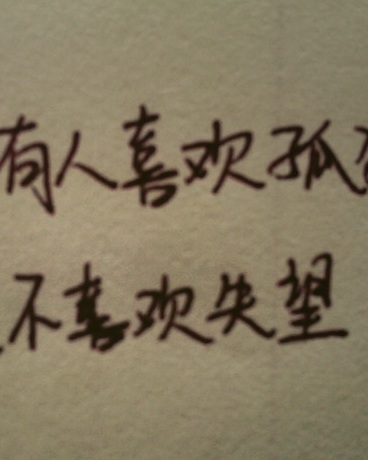 有人喜欢孤
不喜欢失望